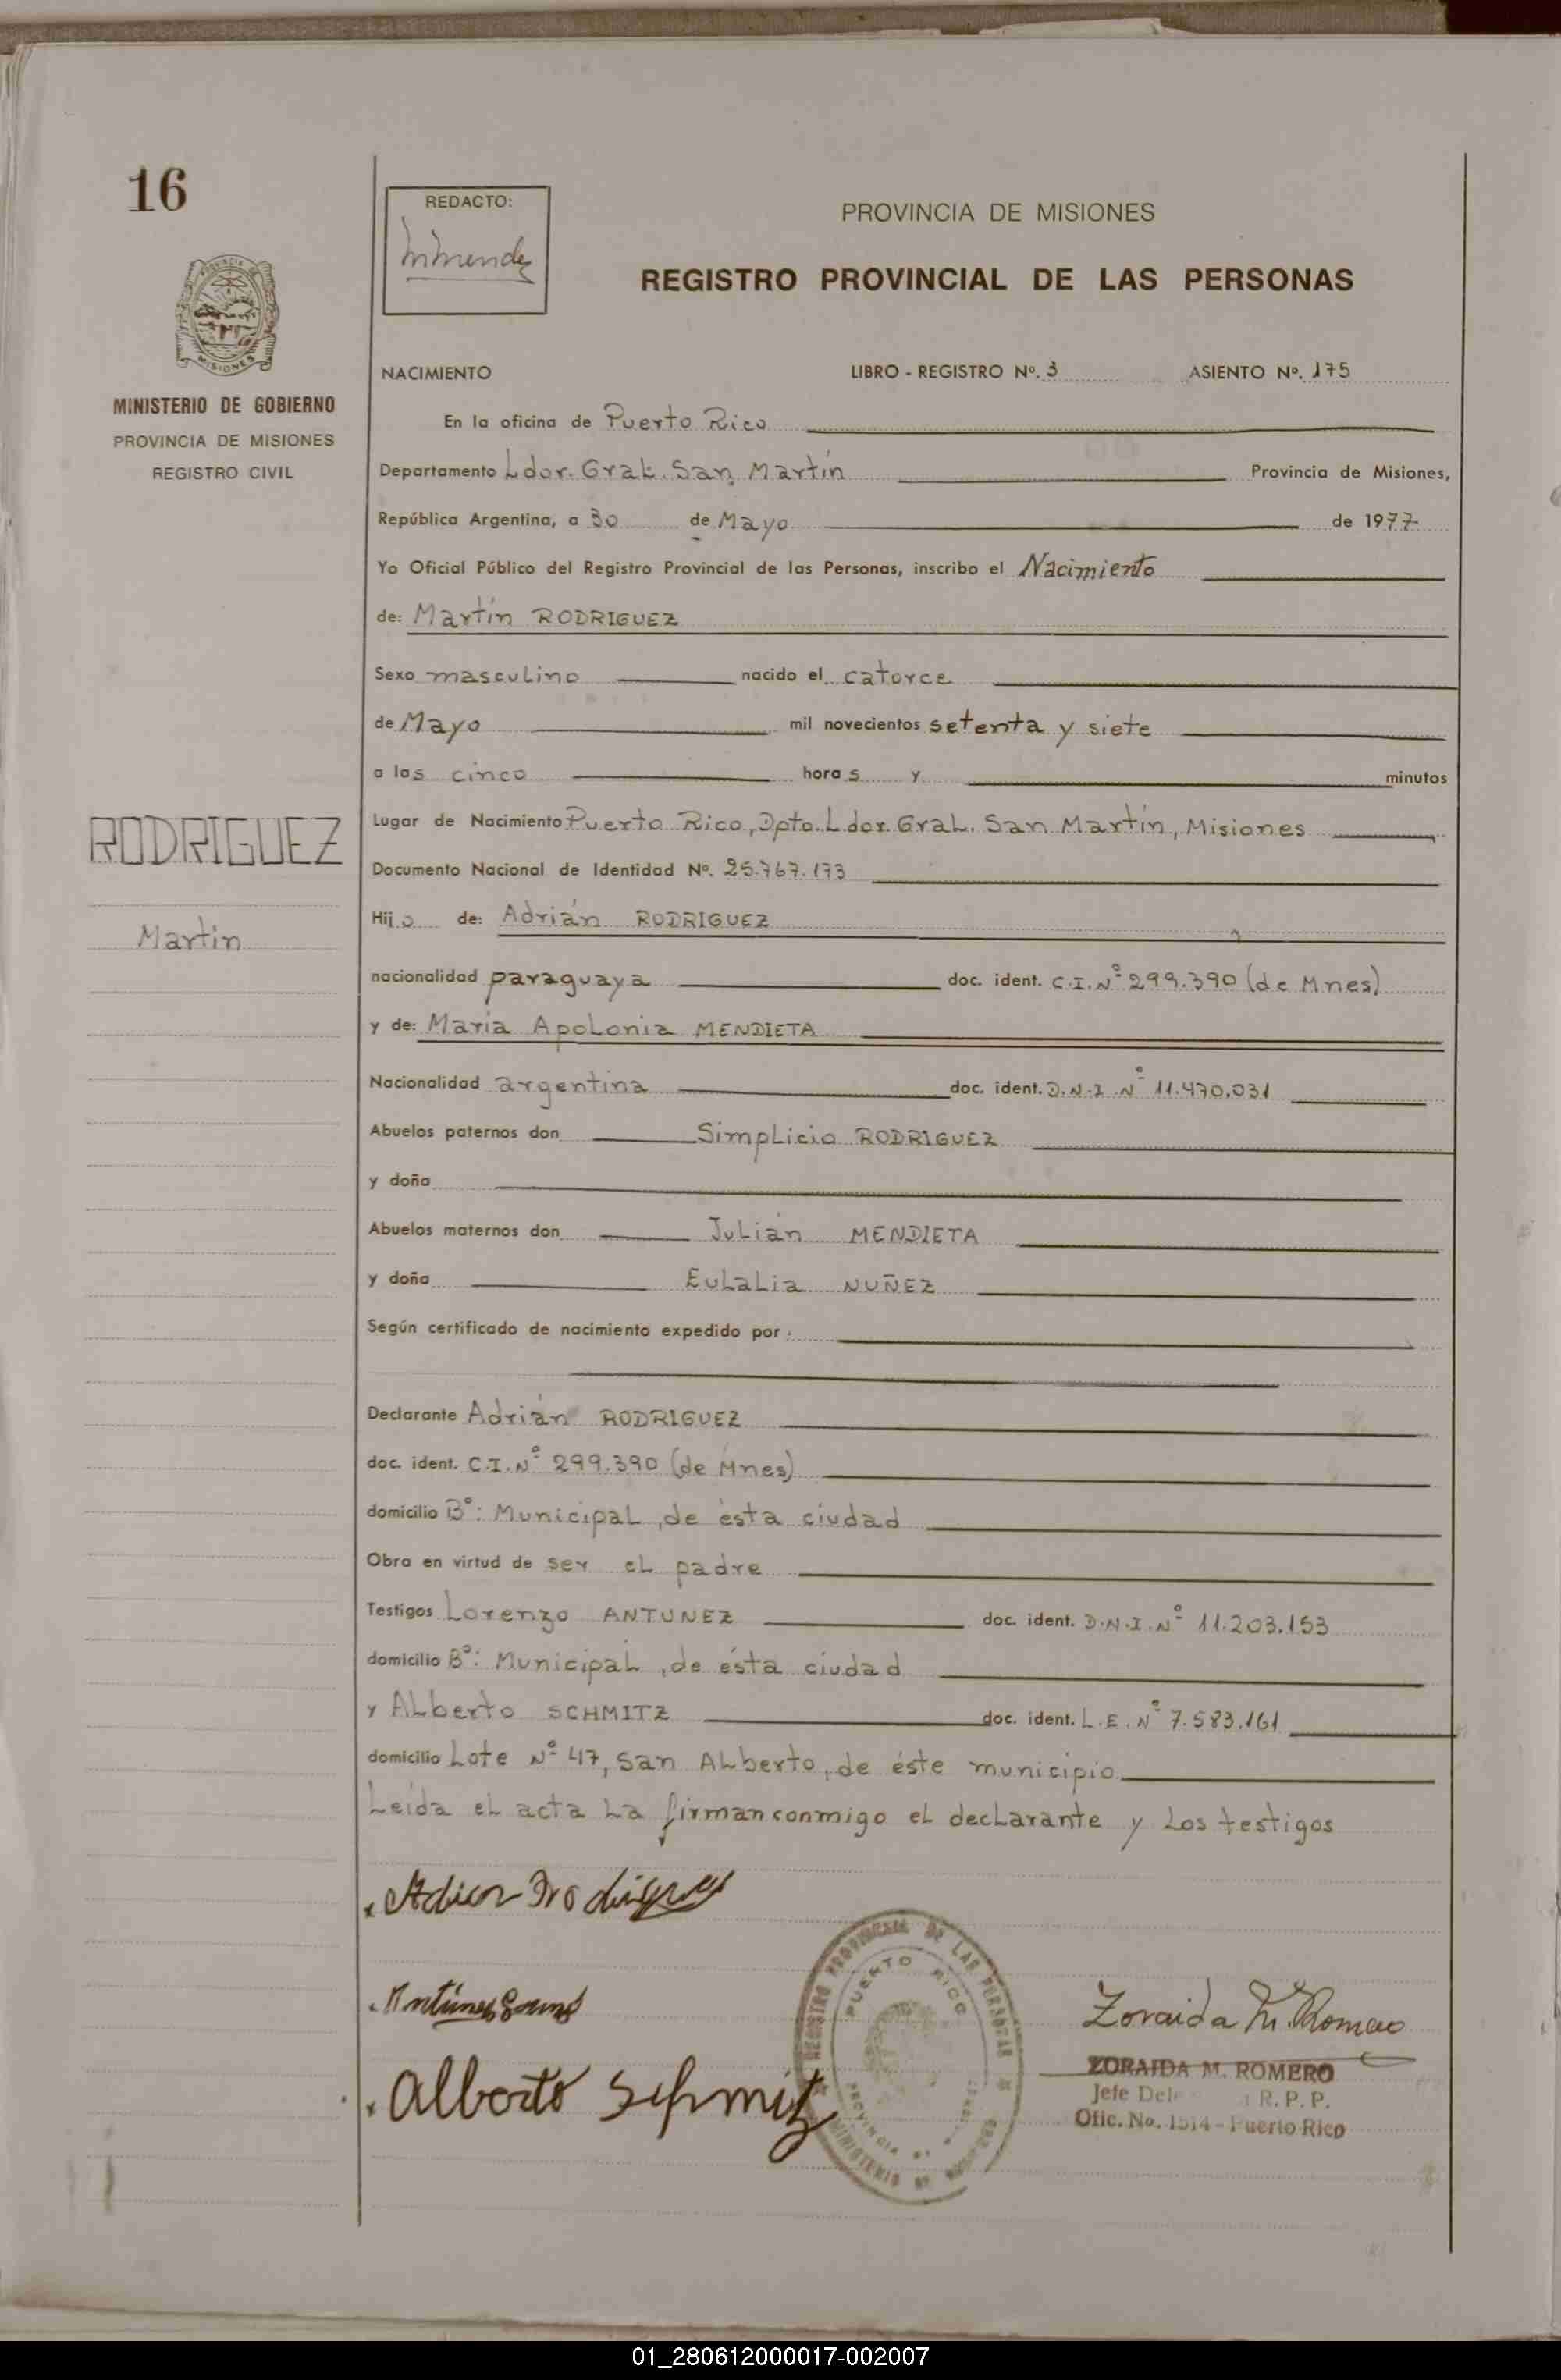 16
REDACTO:
PROVINCIA DE MISIONES
REGISTRO PROVINCIAL DE LAS PERSONAS
MISIONES
MINISTERIO DE GOBIERNO
PROVINCIA DE MISIONES
REGISTRO CIVIL
NACIMIENTO LIBRO - REGISTRO Nº. 3 ASIENTO Nº. 175
En la oficina de Puerto Rico
Departamento Ldor. Gral. San Martín Provincia de Misiones,
República Argentina, a 30 de Mayo de 1977
Yo Oficial Público del Registro Provincial de las Personas, inscribo el Nacimiento
de: Martín RODRIGUEZ
Sexo masculino nacido el catorce
de Mayo mil novecientos setenta y siete
a las cinco horas y minutos
RODRIGUEZ
Martin
Lugar de Nacimiento Puerto Rico, Dpto. Ldor. Gral. San Martín, Misiones
Documento Nacional de Identidad Nº. 25.767.173
Hijo de: Adrián RODRIGUEZ
nacionalidad paraguaya doc. ident. C.I. Nº 299.390 (de Mnes)
y de: María Apolonia MENDIETA
Nacionalidad argentina doc. ident. D.N.I. Nº 11.470.031
Abuelos paternos don Simplicio RODRIGUEZ
y doña
Abuelos maternos don Julián MENDIETA
y doña Eulalia NUÑEZ
Según certificado de nacimiento expedido por:
Declarante Adrián RODRIGUEZ
doc. ident. C.I. Nº 299.390 (de Mnes)
domicilio Bº: Municipal, de ésta ciudad
Obra en virtud de ser el padre
Testigos Lorenzo ANTUNEZ doc. ident. D.N.I. Nº 11.203.153
domicilio Bº: Municipal, de ésta ciudad
y Alberto SCHMITZ doc. ident. L.E. Nº 7.583.161
domicilio Lote Nº 47, San Alberto, de éste municipio
Leída el acta la firman conmigo el declarante y los testigos
REGISTRO PROVINCIAL DE LAS PERSONAS
PUERTO RICO
Zoraida M. Romero
Alberto Schmitz
ZORAIDA M. ROMERO
Jefe R. P. P.
Ofic. No. 1514 - Puerto Rico
01_280612000017-002007